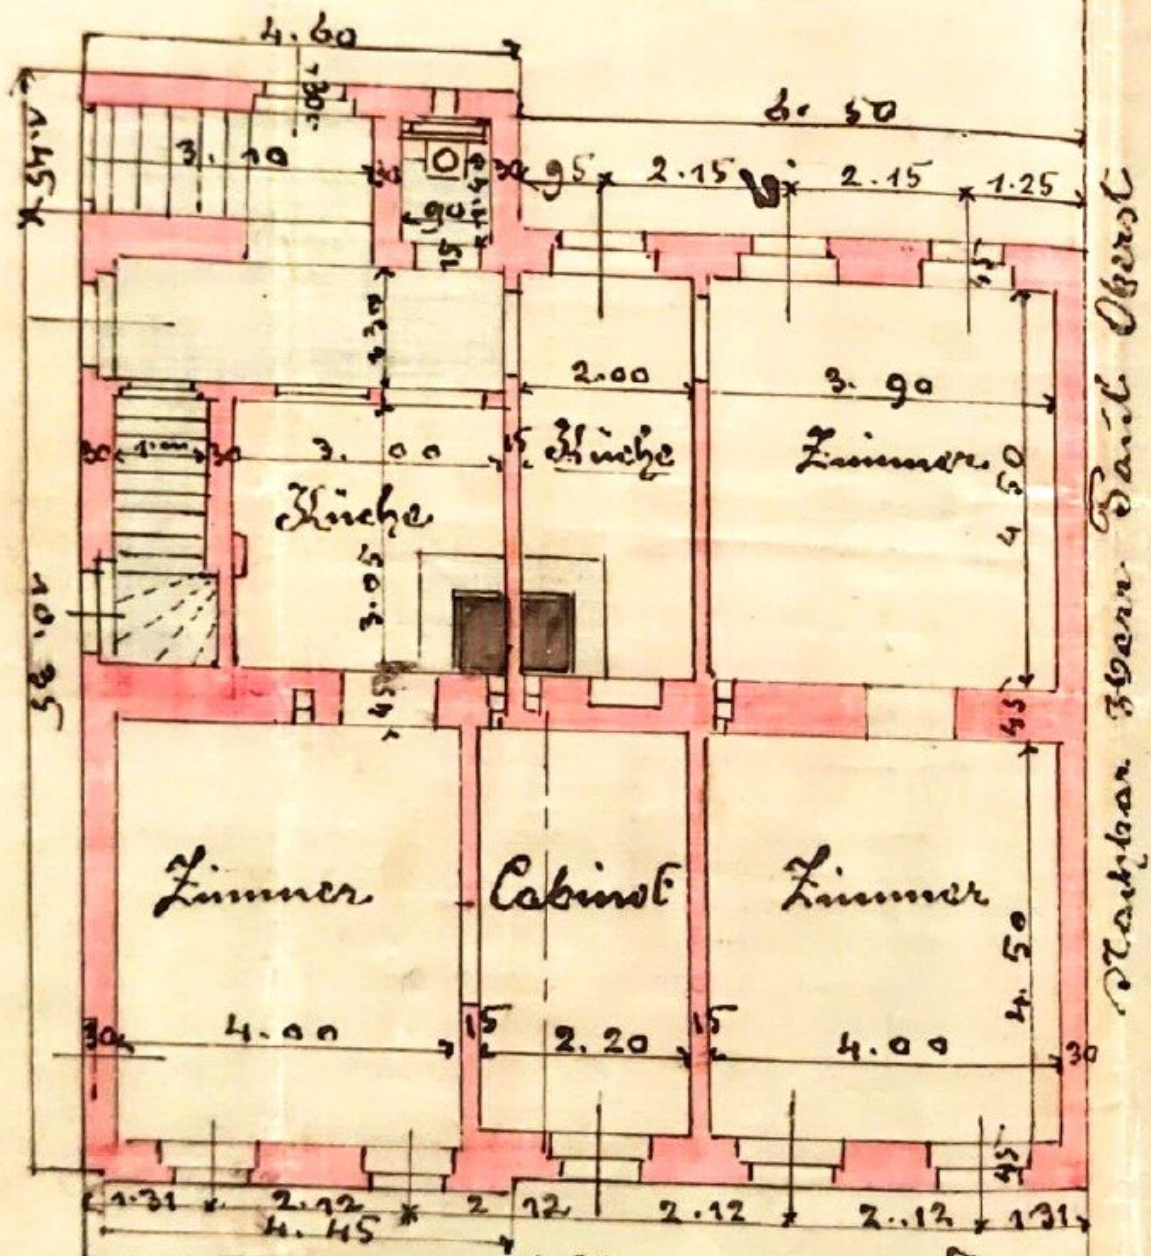 4.60
6. 50
1.45
30
3. 10
30
30
95
2.15
2.15
1.25
90
15
45
1.30
2.00
3. 90
30
30
3. 00
15
Küche
Zimmer
Küche
4 50
3.05
10. 35
45
45
Zimmer
Cabinet
Zimmer
4. 50
30
4.00
15
2.20
15
4.00
30
45
1.31
2.12
2 12
2.12
2.12
1.31
4.45
Nachbar Herr Oberst